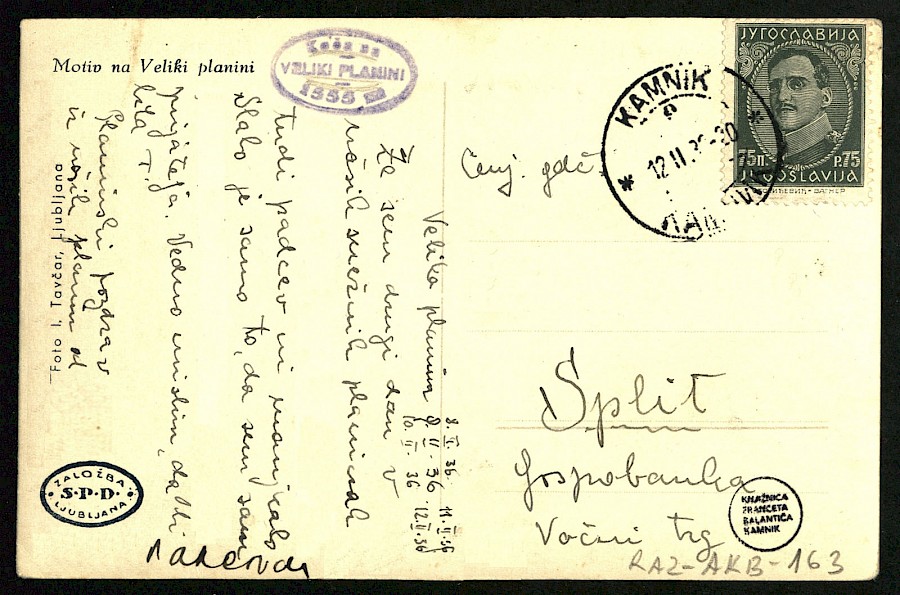 Motiv na Veliki planini
Koča na
VELIKI PLANINI
1558 m
Velika planina
8. II. 36.
9. II. 36
10. II. 36
11. II. 36
12. II. 36
Že sem drugi dan v
snežnih planinah
tudi padcev ni manjkalo
Slabo je samo to, da sem sam
prijatelja. Vedno mislim, da bi
bila Ti.
Planinski pozdrav
iz naših planin od
Foto I. Tavčar, Ljubljana
ZALOŽBA
S·P·D·
LJUBLJANA
KAMNIK
12.II.36-20
ЈУГОСЛАВИЈА
75П. P.75
JUGOSLAVIJA
Cenj. gdč.
Split
Gospobanka
Voćni trg
KNJIŽNICA
FRANCETA
BALANTIČA
KAMNIK
RAZ-AKB-163